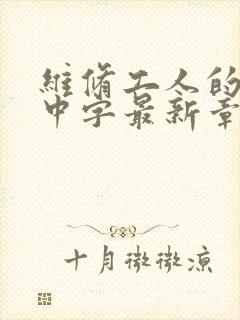 维修工人的
中字最新章
十月微微凉